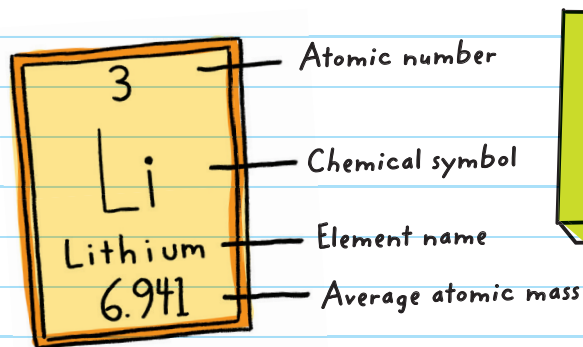 3
Atomic number
Li
Chemical symbol
Lithium
Element name
6.941
Average atomic mass